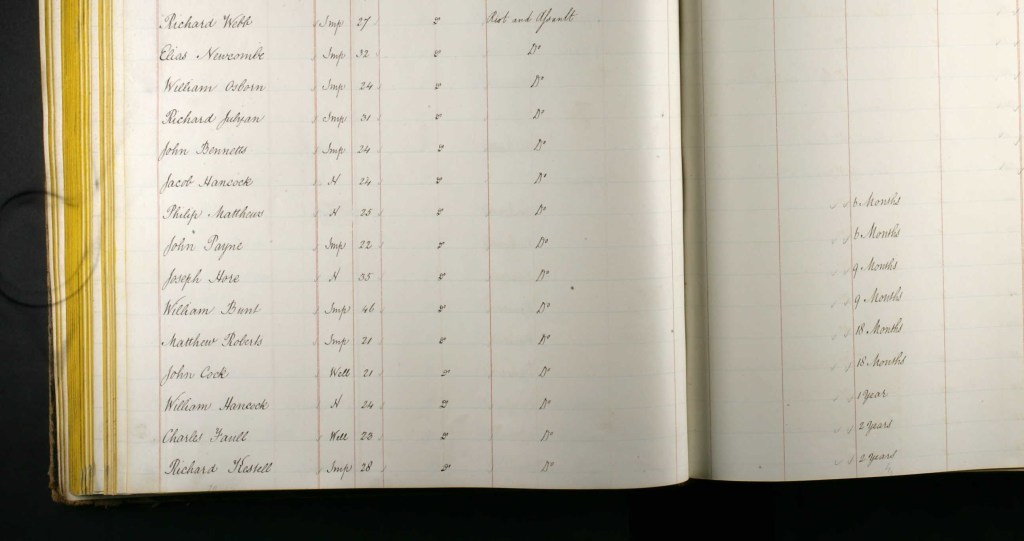 Richard Webb Imp 27 " Riot and Assault
Elias Newcombe Imp 32 " Do
William Osborn Imp 24 " Do
Richard Julyan Imp 31 " Do
John Bennetts Imp 24 " Do
Jacob Hancock N 24 " Do
Philip Matthews N 25 " Do 6 Months
John Payne Imp 22 " Do 6 Months
Joseph Hore N 35 " Do 9 Months
William Bunt Imp 46 " Do 9 Months
Matthew Roberts Imp 21 " Do 18 Months
John Cock Well 21 " Do 18 Months
William Hancock N 24 " Do 1 Year
Charles Faull Well 23 " Do 2 Years
Richard Kestell Imp 28 " Do 2 Years